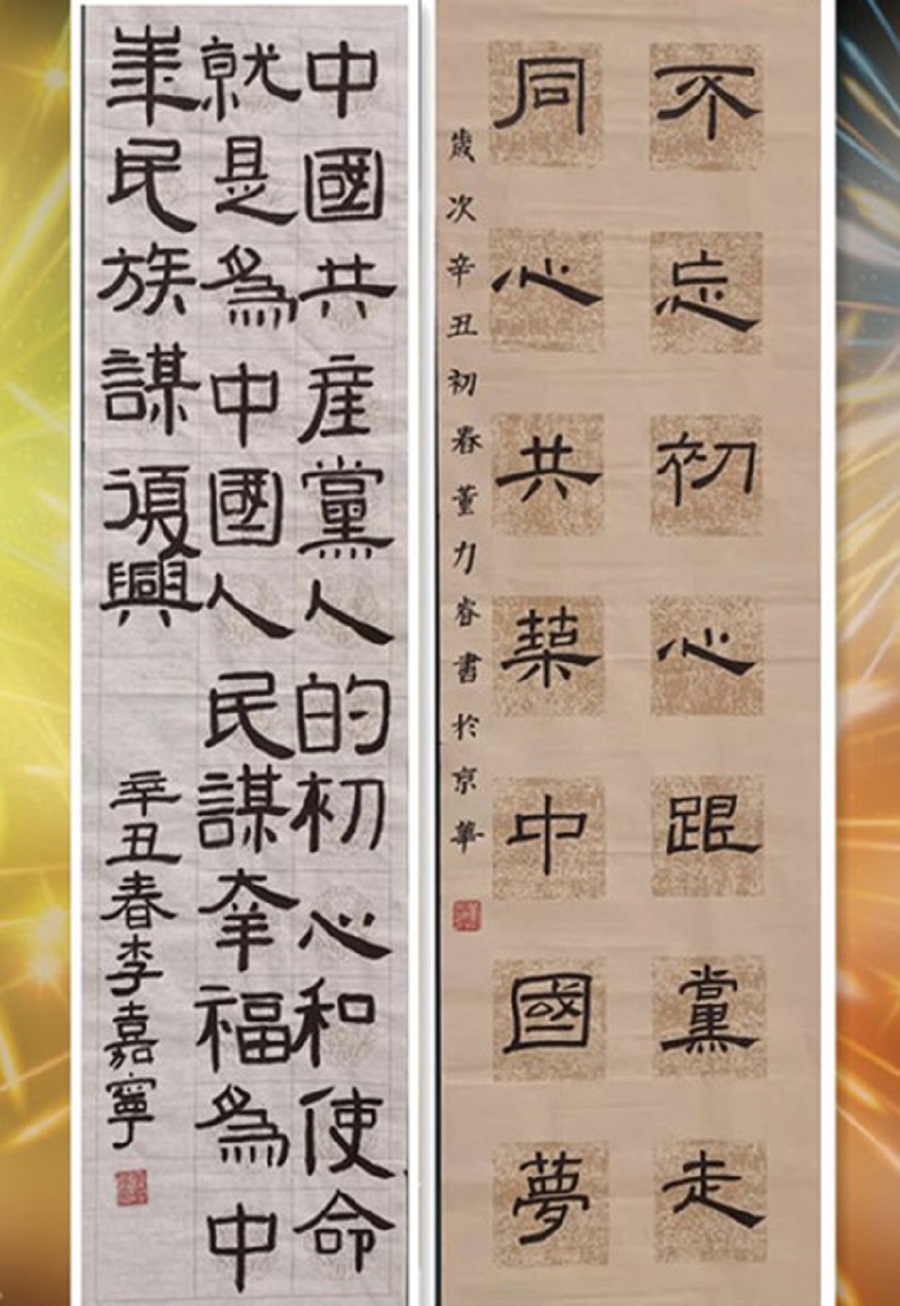 不忘初心跟黨走
同心共築中國夢
歲次辛丑初春董力睿書於京華
中國共産黨人的初心和使命
就是爲中國人民謀幸福爲中
華民族謀復興
辛丑春李嘉寧